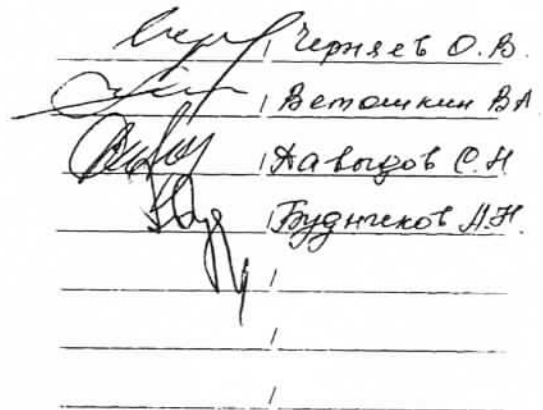 / Черняев О.В.
/ Ветошкин В.А
/ Давыдов С.Н
/ Будников А.Н.
/
/
/